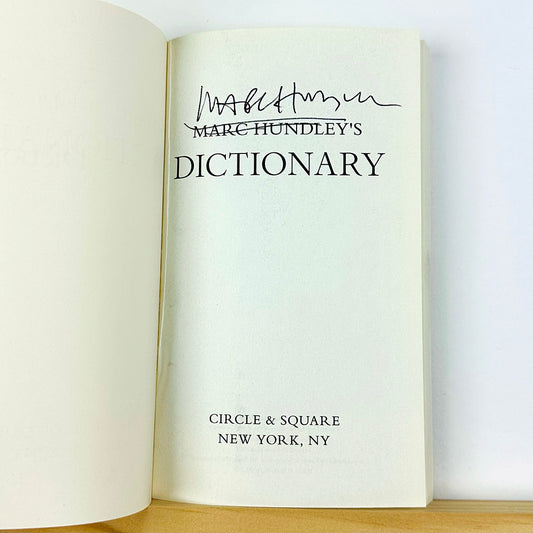 MARC HUNDLEY'S
DICTIONARY
CIRCLE & SQUARE
NEW YORK, NY